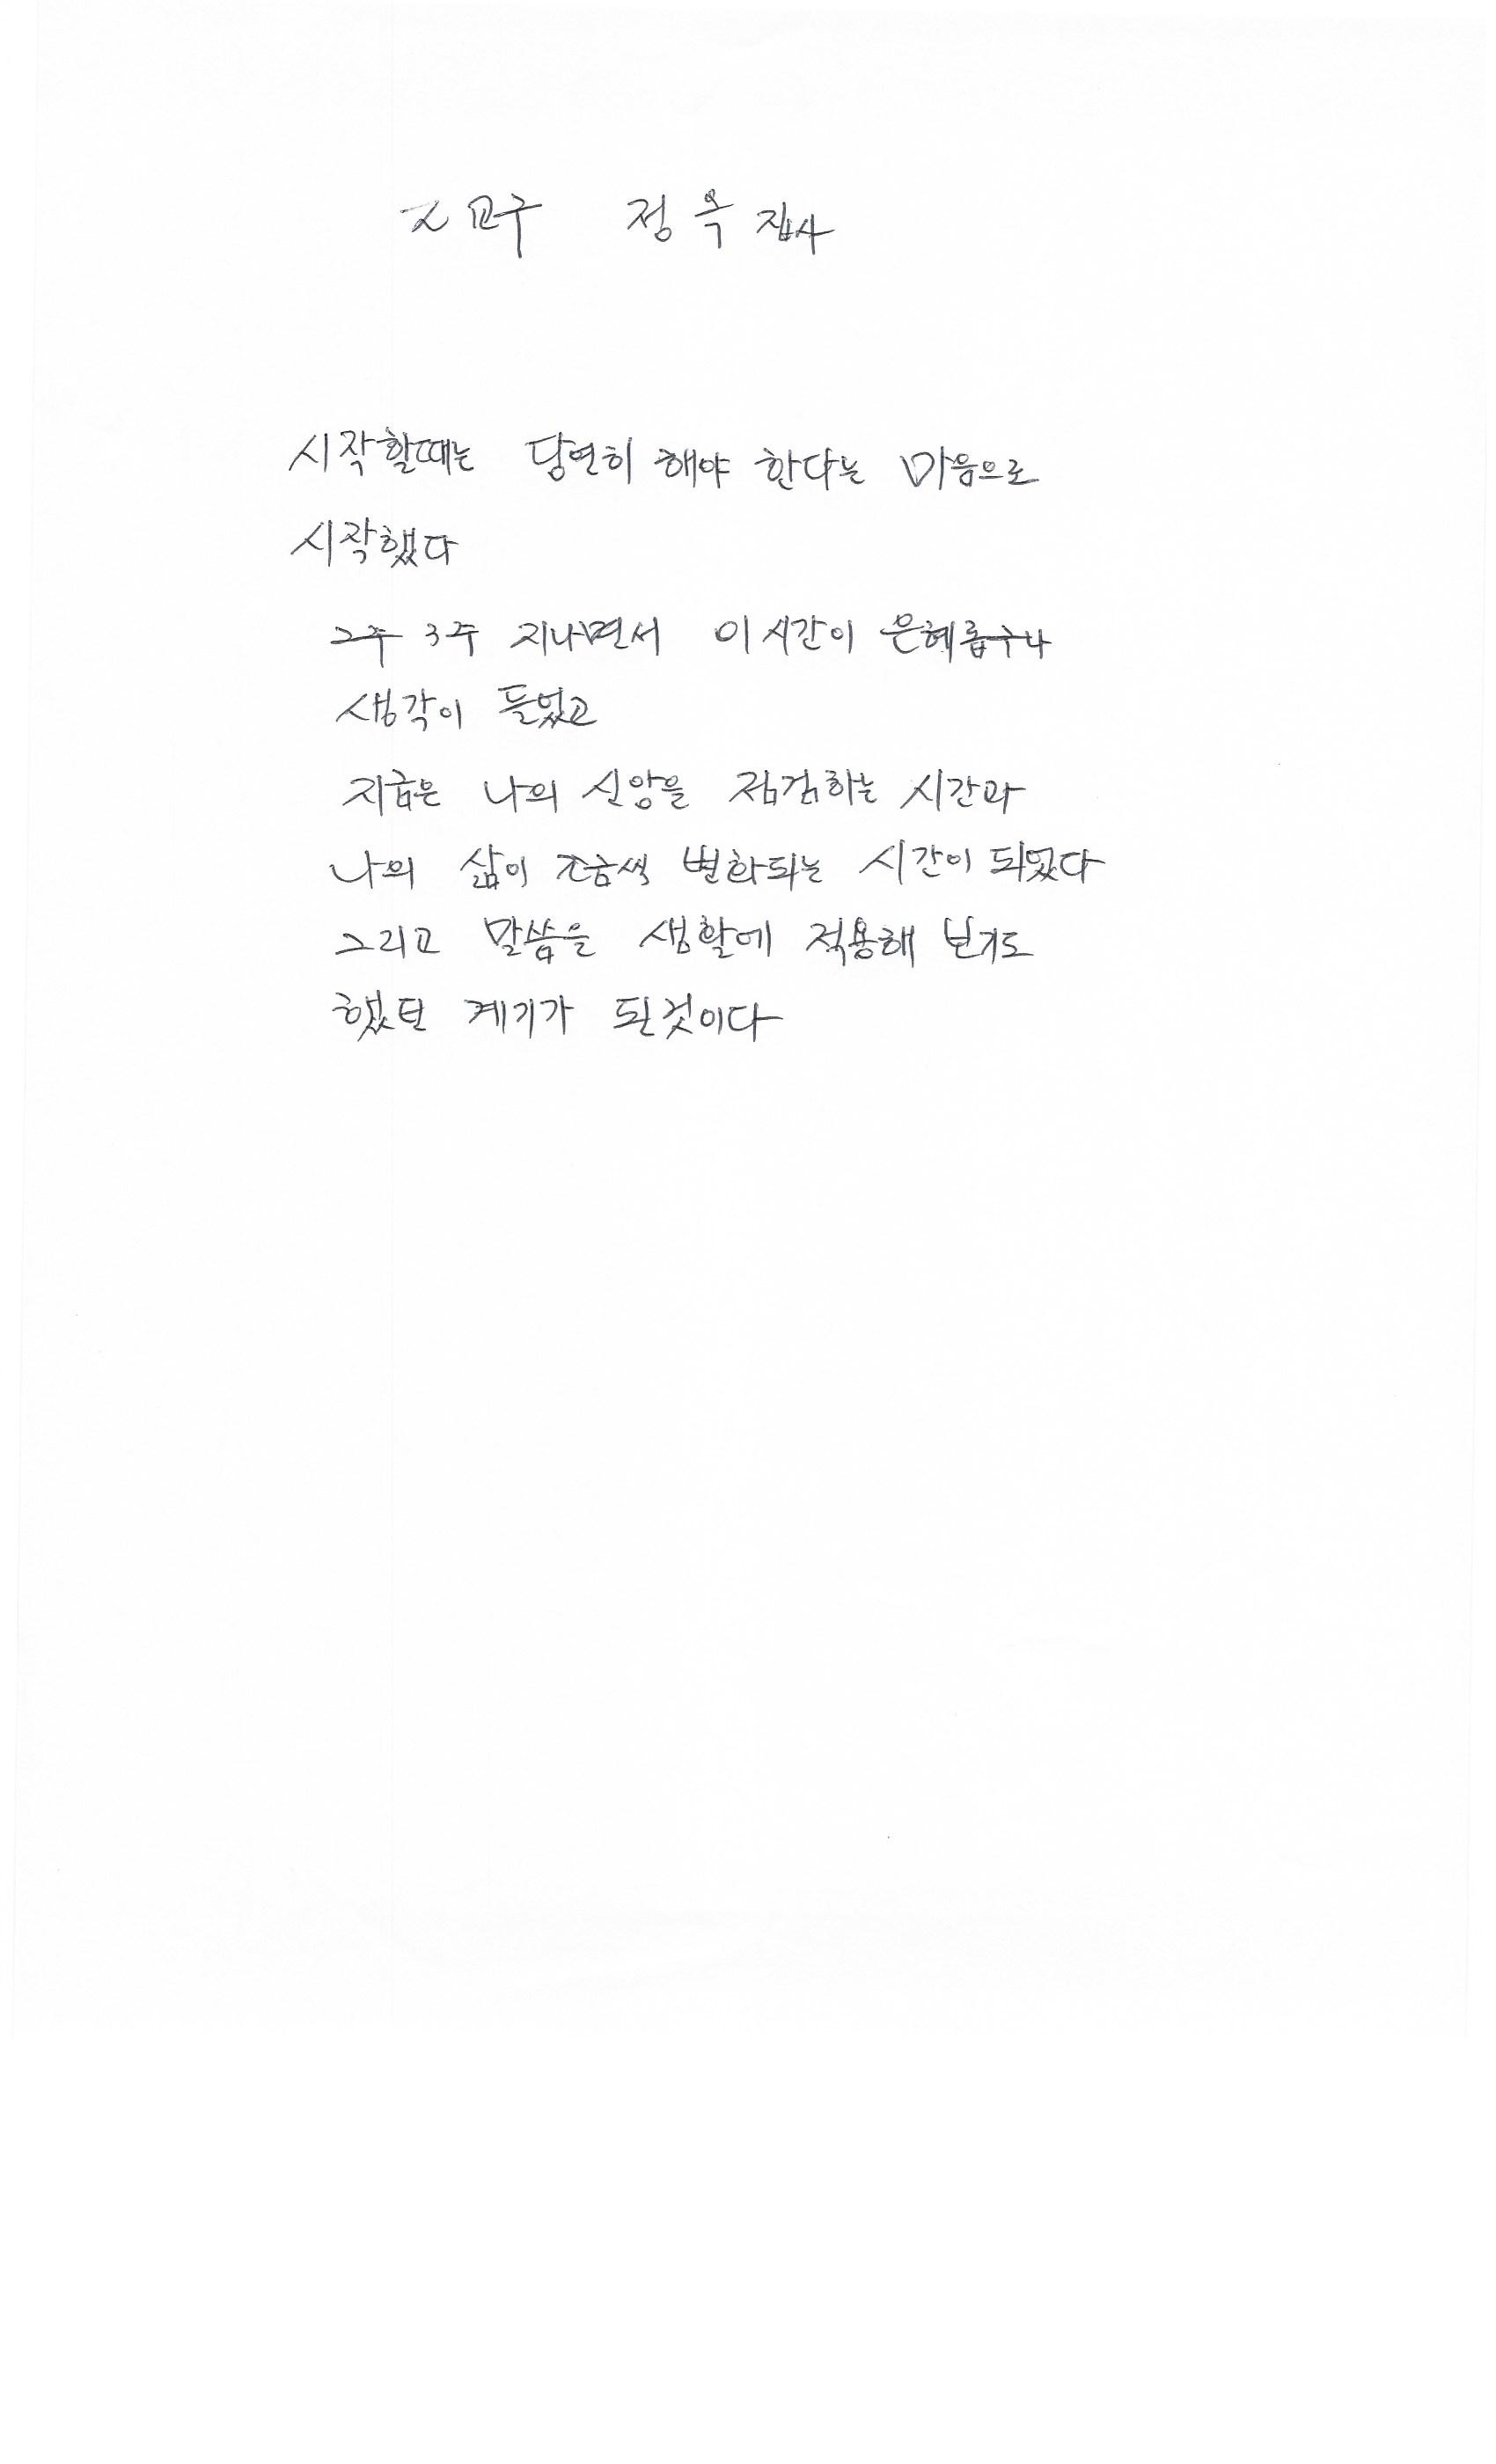 교구 정옥 집사
시작할때는 당연히 해야 한다는 마음으로
시작했다
2주 3주 지나면서 이 시간이 은혜롭구나
생각이 들었고
지금은 나의 신앙을 점검하는 시간과
나의 삶이 조금씩 변화되는 시간이 되었다
그리고 말씀을 생활에 적용해 보기도
했던 계기가 된것이다